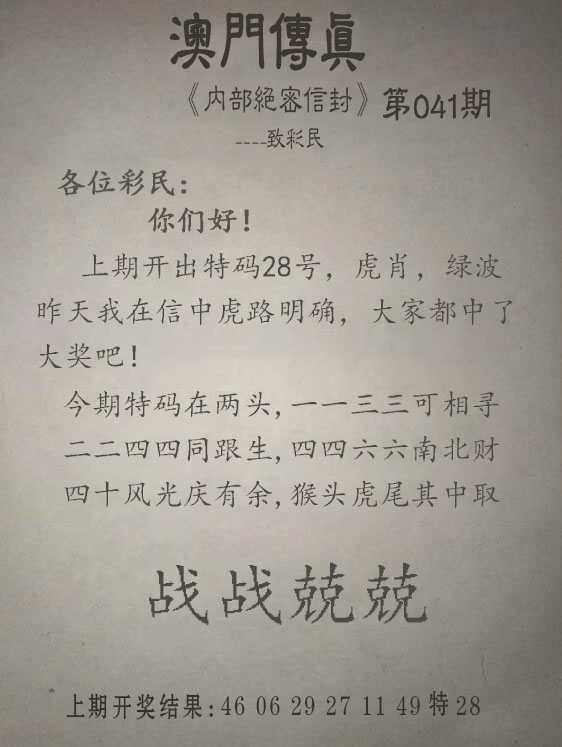 澳門傳眞
《内部絕密信封》第041期
----致彩民
各位彩民：
你们好！
上期开出特码28号，虎肖，绿波
昨天我在信中虎路明确，大家都中了
大奖吧！
今期特码在两头,一一三三可相寻
二二四四同跟生,四四六六南北财
四十风光庆有余,猴头虎尾其中取
战战兢兢
上期开奖结果:46 06 29 27 11 49 特 28